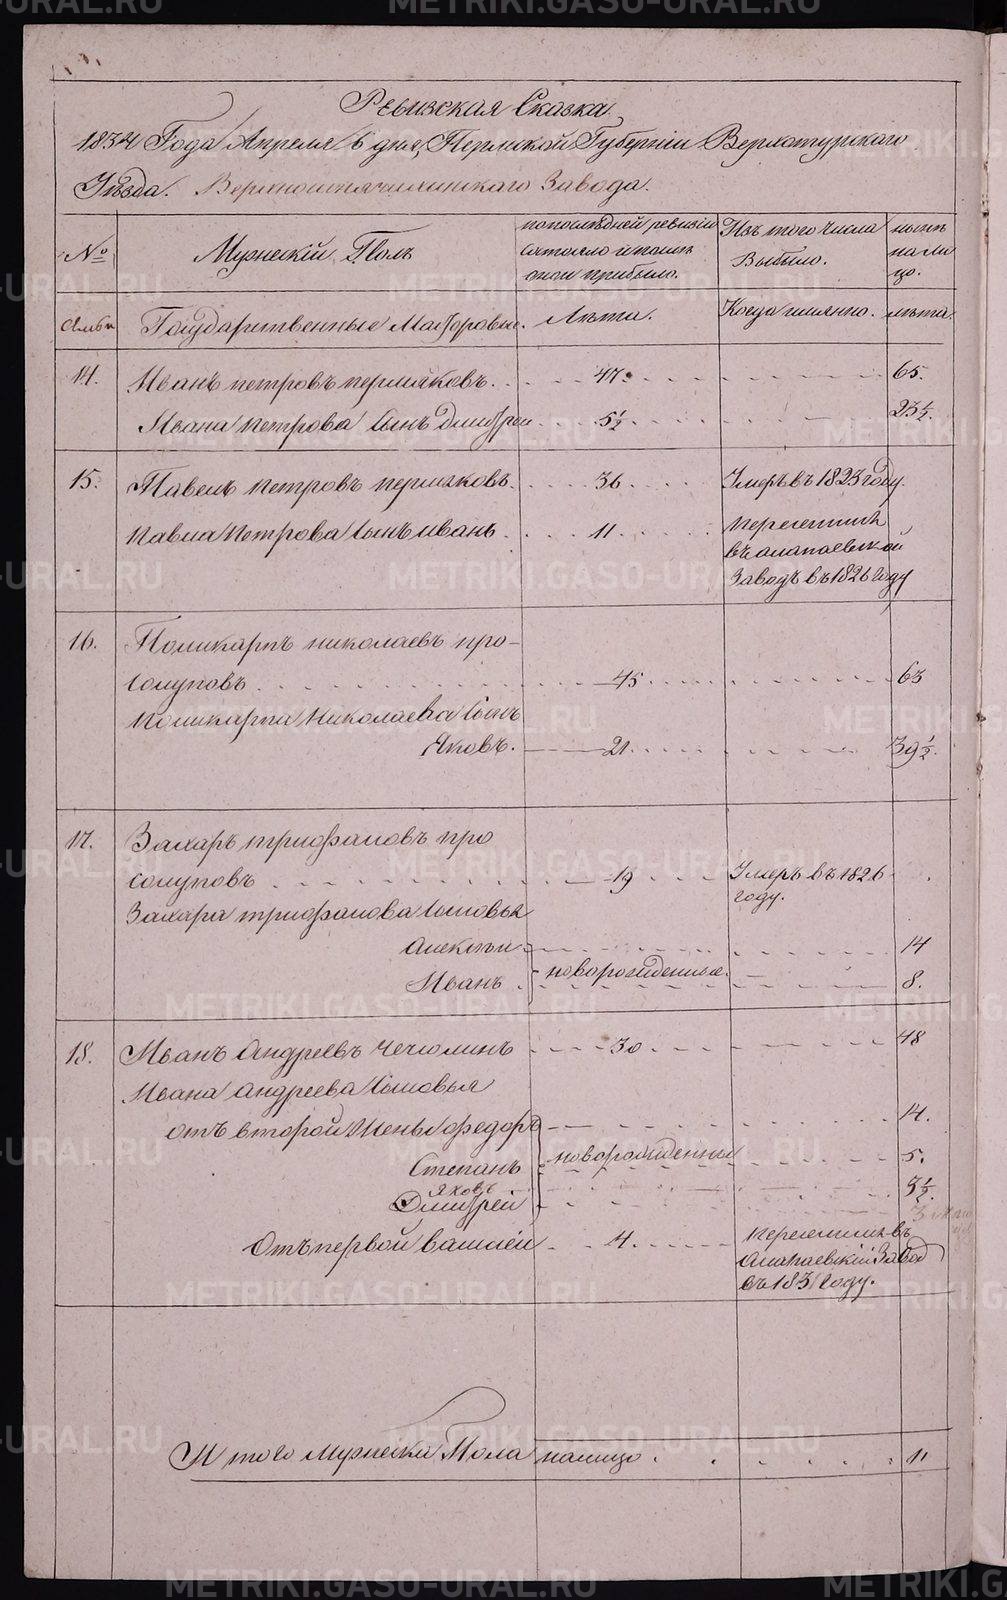 Ревизская Сказка.
1834 Года Апреля 6 дня, Пермской Губернiи Верхотурскаго
Уезда. Верхносинячихинскаго Завода.
№
Мужескiй Полъ
по последней ревизiи
состояло и после
оной прибыло.
Изъ того числа
Выбыло.
ныне
на ли
цо.
Семьи
Государственные Мастеровые.
Лета.
Когда имянно.
лета.
14. Иванъ петровъ пермяковъ. 47. 65.
Ивана петрова сынъ Дмитрей 5½ 23½.
15. Павелъ петровъ пермяковъ. 36. Умеръ въ 1823 году.
Павла Петрова сынъ иванъ. 11. переведенъ
въ алапаевской
Заводъ въ 1826 году
16. Поликарпъ николаевъ про-
солуповъ 45 63
Поликарпа Николаева сынъ
Яковъ. 21. 39½.
17. Захаръ трифановъ про
солуповъ 19 Умеръ въ 1826
году.
Захара трифанова сыновья
алексей 14
Иванъ новорожденные. 8.
18. Иванъ Андреевъ Чечулинъ 30 48
Ивана андреева сыновья
отъ второй жены федоръ 14.
Степанъ новорожденныя 5.
яковъ 3½.
Дмитрей
Отъ первой василей 4. переведенъ въ
алапаевскiй Завод
въ 1831 Году.
И того мужеска Пола налицо 11
METRIKI.GASO-URAL.RU